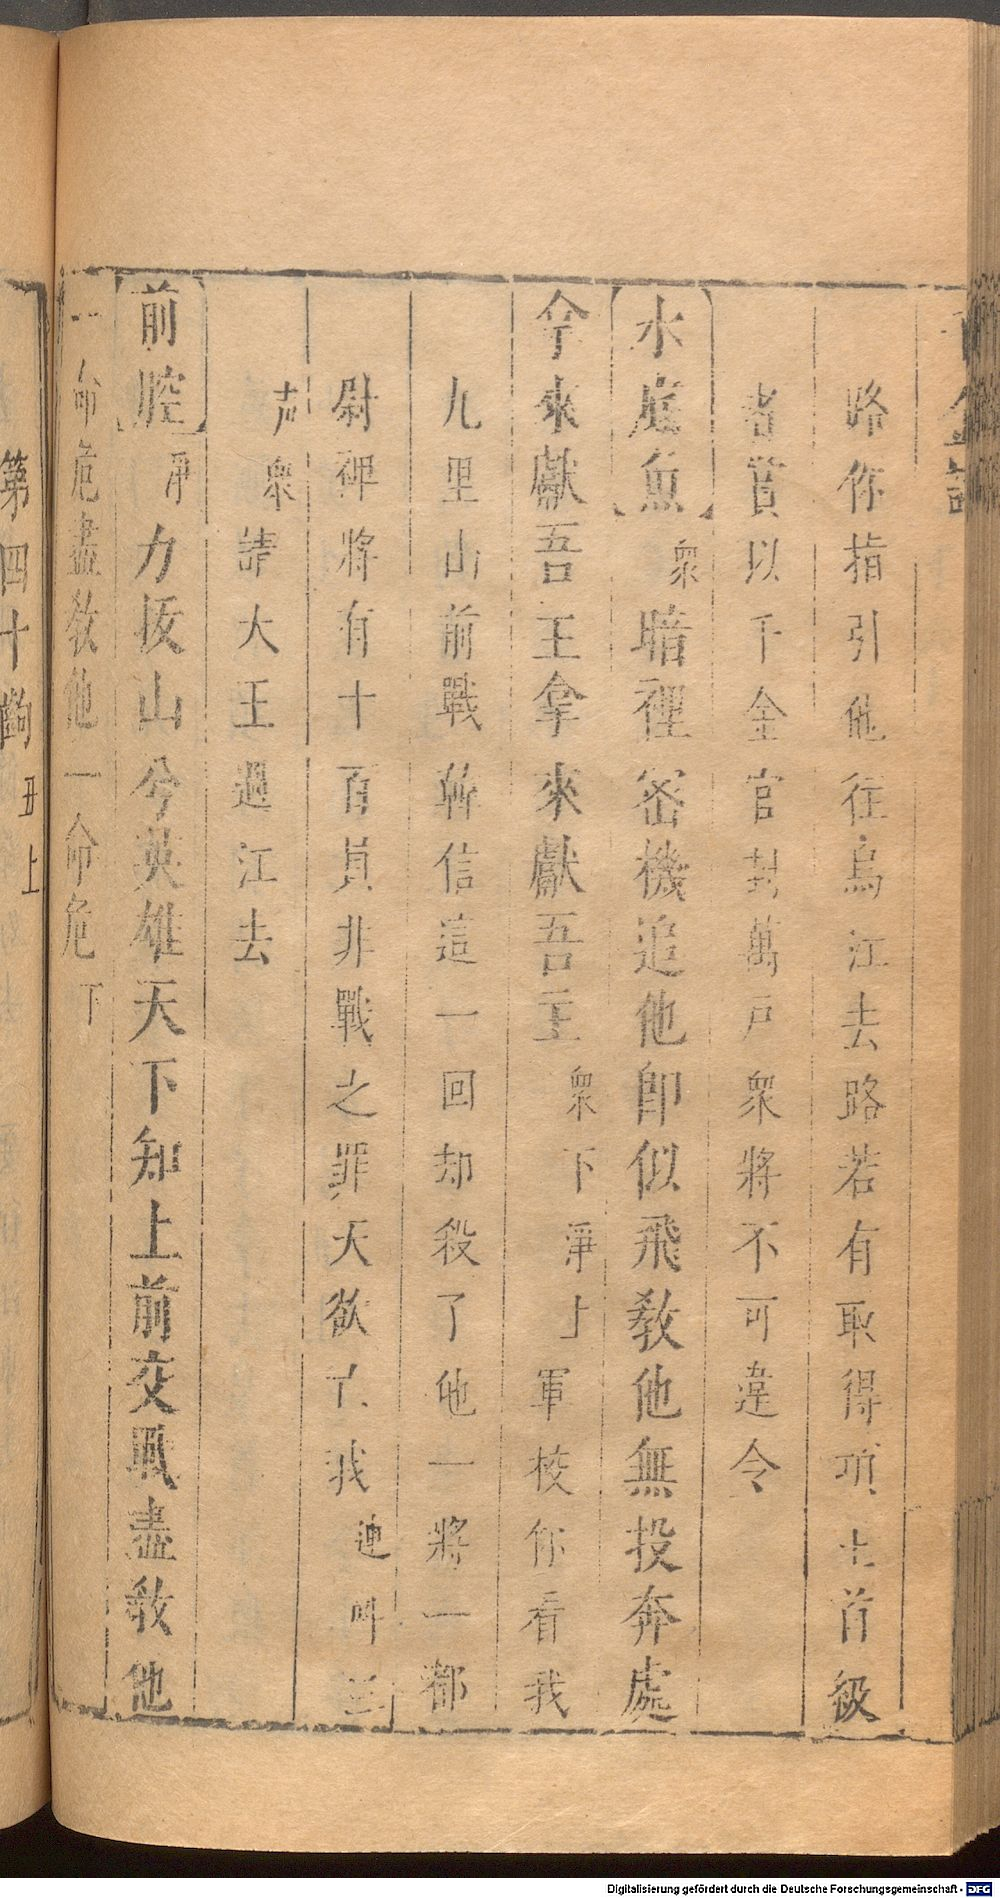 路你指引他往烏江去路若有取得項王首級
者賞以千金官封萬戸衆將不可違令
水底魚 衆 暗裡密機追他卽似飛教他無投奔處
兮來獻吾王拿來獻吾王 衆下淨上 軍校你看我
九里山前戰韓信這一回却殺了他一將一都
尉裨將有十百員非戰之罪天欲亡我 連叫三
声 衆 請大王過江去
前腔 淨 力拔山兮英雄天下知上前交戰盡教他
一命危盡教他一命危 下
第四十齣 丑上
Digitalisierung gefördert durch die Deutsche Forschungsgemeinschaft - DFG